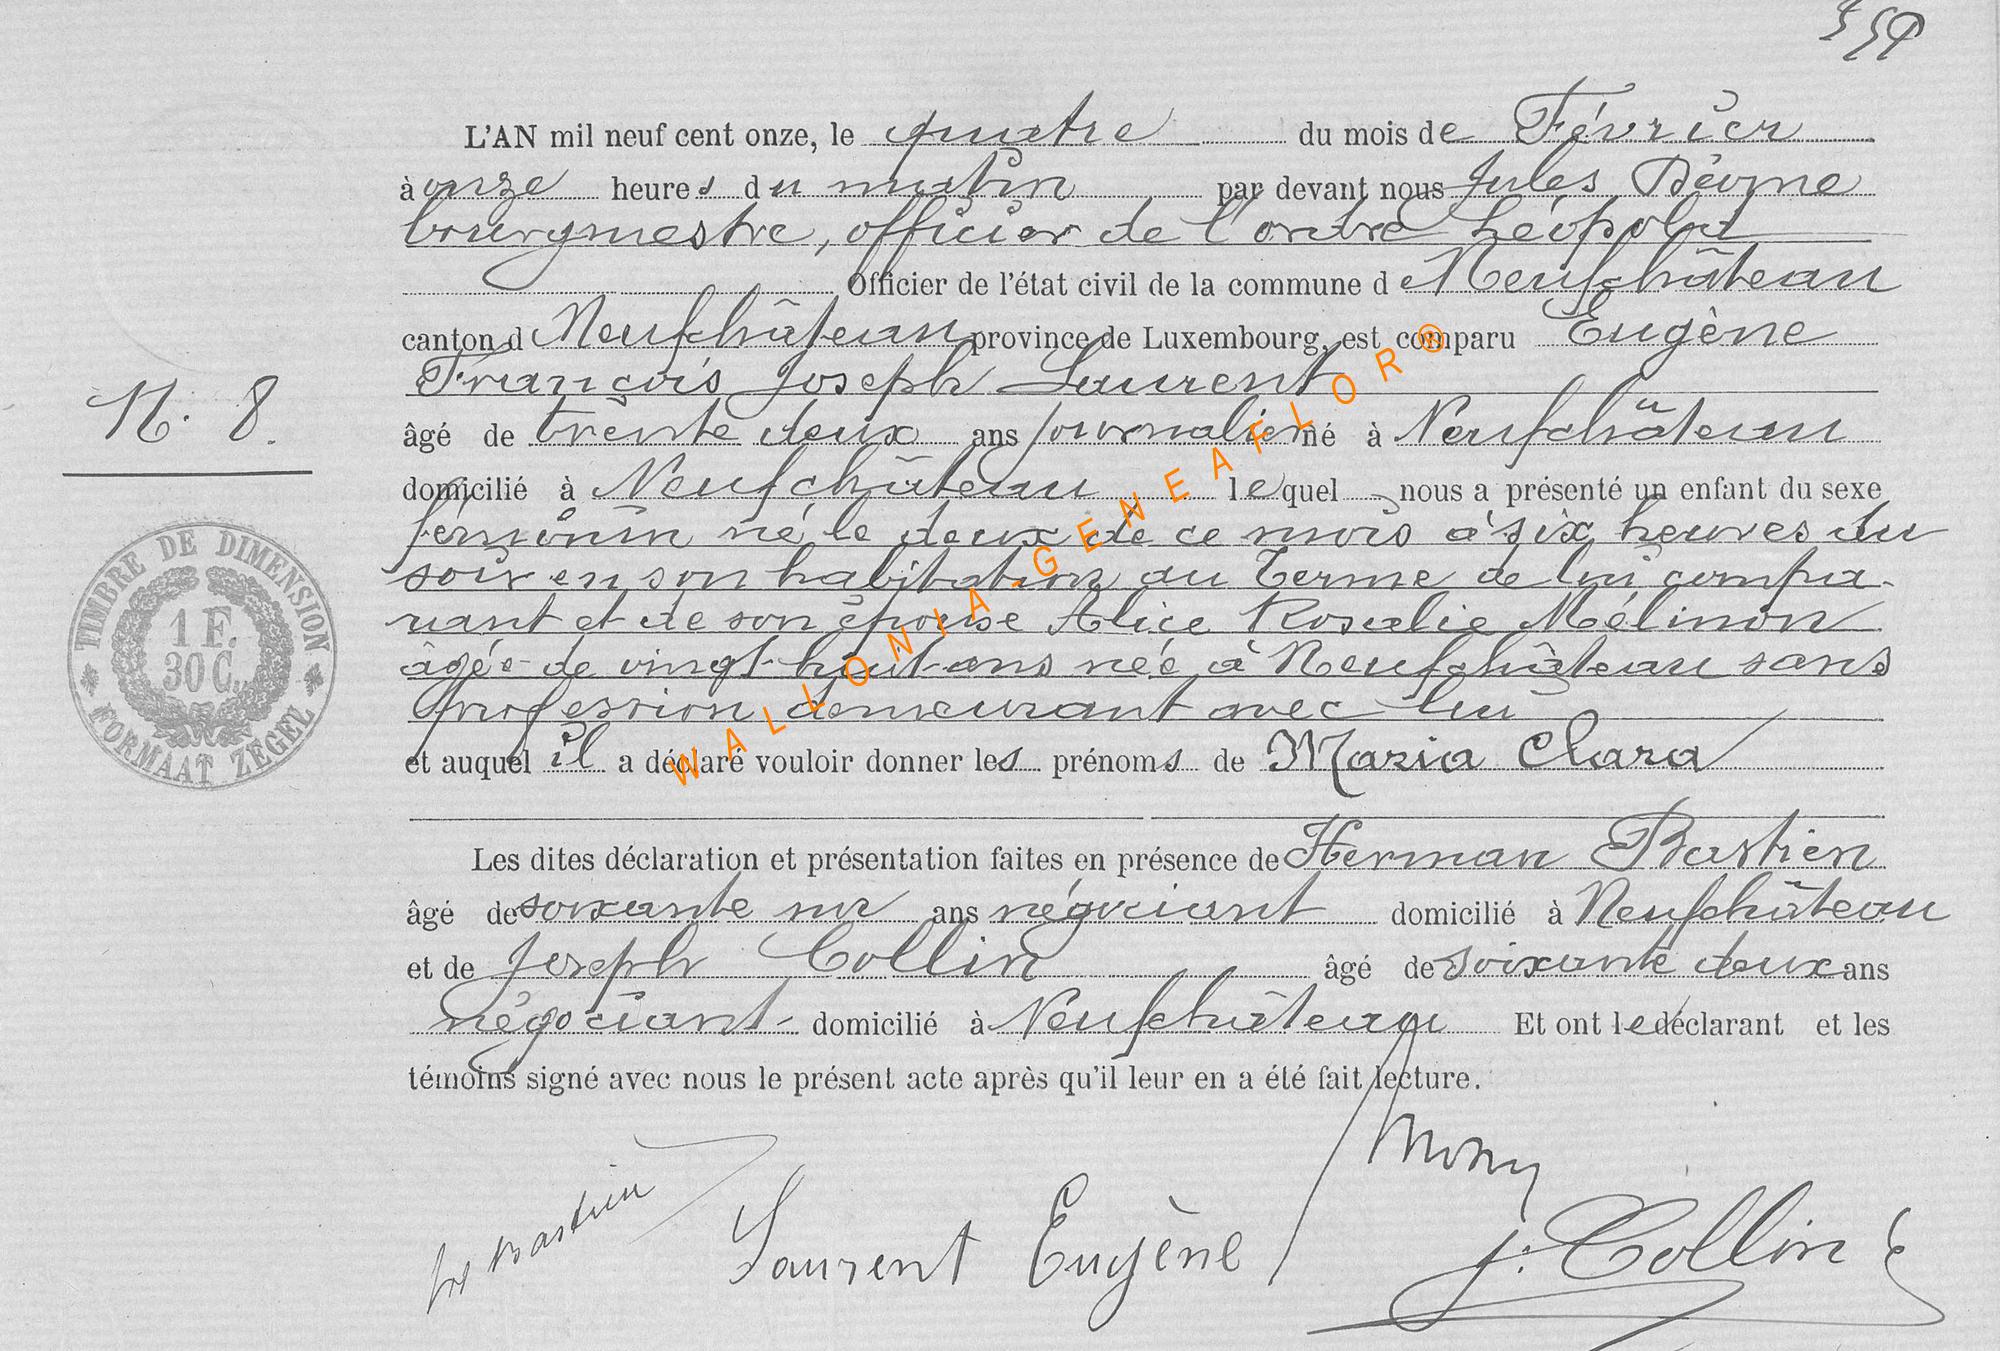 L'AN mil neuf cent onze, le quatre du mois de Février
à onze heures du matin par devant nous Jules
bourgmestre, officier de l'ordre Léopold
Officier de l'état civil de la commune d Neufchâteau
canton d Neufchâteau province de Luxembourg, est comparu Eugène
François Joseph Laurent
N. 8.
âgé de trente deux ans journalier né à Neufchâteau
domicilié à Neufchâteau lequel nous a présenté un enfant du sexe
féminin né le deux de ce mois à six heures du
soir en son habitation au Terme de lui compa-
rant et de son épouse Alice Rosalie Mélinon
âgée de vingt-huit ans née à Neufchâteau sans
profession demeurant avec lui
et auquel il a déclaré vouloir donner les prénoms de Maria Clara
TIMBRE DE DIMENSION
1 F.
30 C.
FORMAAT ZEGEL
WALLONIA-GENEAFLOR®
Les dites déclaration et présentation faites en présence de Herman Bastien
âgé de soixante ans négociant domicilié à Neufchâteau
et de Joseph Collin âgé de soixante deux ans
négociant domicilié à Neufchâteau Et ont le déclarant et les
témoins signé avec nous le présent acte après qu'il leur en a été fait lecture.
Bastien
Laurent Eugène
J. Collin